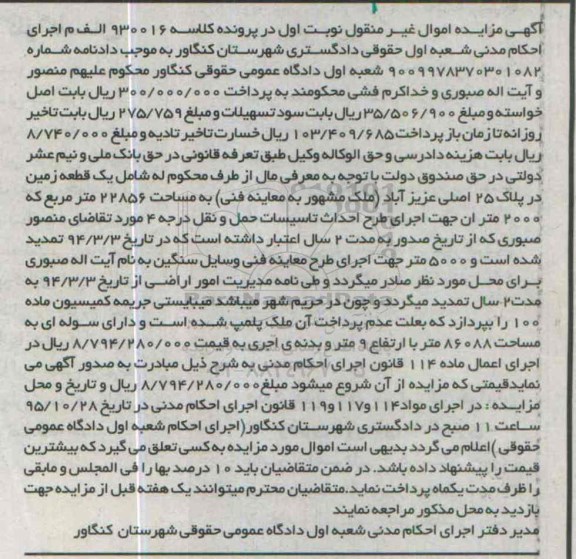 آگهی مزایده اموال غیر منقول نوبت اول در پرونده کلاسه ۹۳۰۰۱۶ الف م اجرای
احکام مدنی شعبه اول حقوقی دادگستری شهرستان کنگاور به موجب دادنامه شماره
۹۰۰۹۹۷۸۳۷۰۳۰۱۰۸۲ شعبه اول دادگاه عمومی حقوقی کنگاور محکوم علیهم منصور
و آیت اله صبوری و خداکرم فشی محکومند به پرداخت ۳۰۰/۰۰۰/۰۰۰ ریال بابت اصل
خواسته و مبلغ ۳۵/۵۰۶/۹۰۰ ریال بابت سود تسهیلات و مبلغ ۲۷۵/۷۵۹ ریال بابت تاخیر
روزانه تا زمان باز پرداخت ۱۰۳/۴۰۹/۶۸۵ ریال خسارت تاخیر تادیه و مبلغ ۸/۷۴۰/۰۰۰
ریال بابت هزینه دادرسی و حق الوکاله وکیل طبق تعرفه قانونی در حق بانک ملی و نیم عشر
دولتی در حق صندوق دولت با توجه به معرفی مال از طرف محکوم له شامل یک قطعه زمین
در پلاک ۲۵ اصلی عزیز آباد (ملک مشهور به معاینه فنی) به مساحت ۲۲۸۵۶ متر مربع که
۲۰۰۰ متر ان جهت اجرای طرح احداث تاسیسات حمل و نقل درجه ۴ مورد تقاضای منصور
صبوری که از تاریخ صدور به مدت ۲ سال اعتبار داشته است که در تاریخ ۹۴/۳/۳ تمدید
شده است و ۵۰۰۰ متر جهت اجرای طرح معاینه فنی وسایل سنگین به نام آیت اله صبوری
برای محل مورد نظر صادر میگردد و طی نامه مدیریت امور اراضی از تاریخ ۹۴/۳/۳ به
مدت ۲ سال تمدید میگردد و چون در حریم شهر میباشد میبایستی جریمه کمیسیون ماده
۱۰۰ را بپردازد که بعلت عدم پرداخت آن ملک پلمپ شده است و دارای سوله ای به
مساحت ۸۶۰۸۸ متر با ارتفاع ۹ متر و بدنه ی آجری به قیمت ۸/۷۹۴/۲۸۰/۰۰۰ ریال در
اجرای اعمال ماده ۱۱۴ قانون اجرای احکام مدنی به شرح ذیل مبادرت به صدور آگهی می
نماید قیمتی که مزایده از آن شروع میشود مبلغ ۸/۷۹۴/۲۸۰/۰۰۰ ریال و تاریخ و محل
مزایده : در اجرای مواد ۱۱۴و۱۱۷و۱۱۹ قانون اجرای احکام مدنی در تاریخ ۹۵/۱۰/۲۸
ساعت ۱۱ صبح در دادگستری شهرستان کنگاور(اجرای احکام شعبه اول دادگاه عمومی
حقوقی) اعلام می گردد بدیهی است اموال مورد مزایده به کسی تعلق می گیرد که بیشترین
قیمت را پیشنهاد داده باشد. در ضمن متقاضیان باید ۱۰ درصد بها را فی المجلس و مابقی
را ظرف مدت یکماه پرداخت نماید.متقاضیان محترم میتوانند یک هفته قبل از مزایده جهت
بازدید به محل مذکور مراجعه نمایند
مدیر دفتر اجرای احکام مدنی شعبه اول دادگاه عمومی حقوقی شهرستان کنگاور